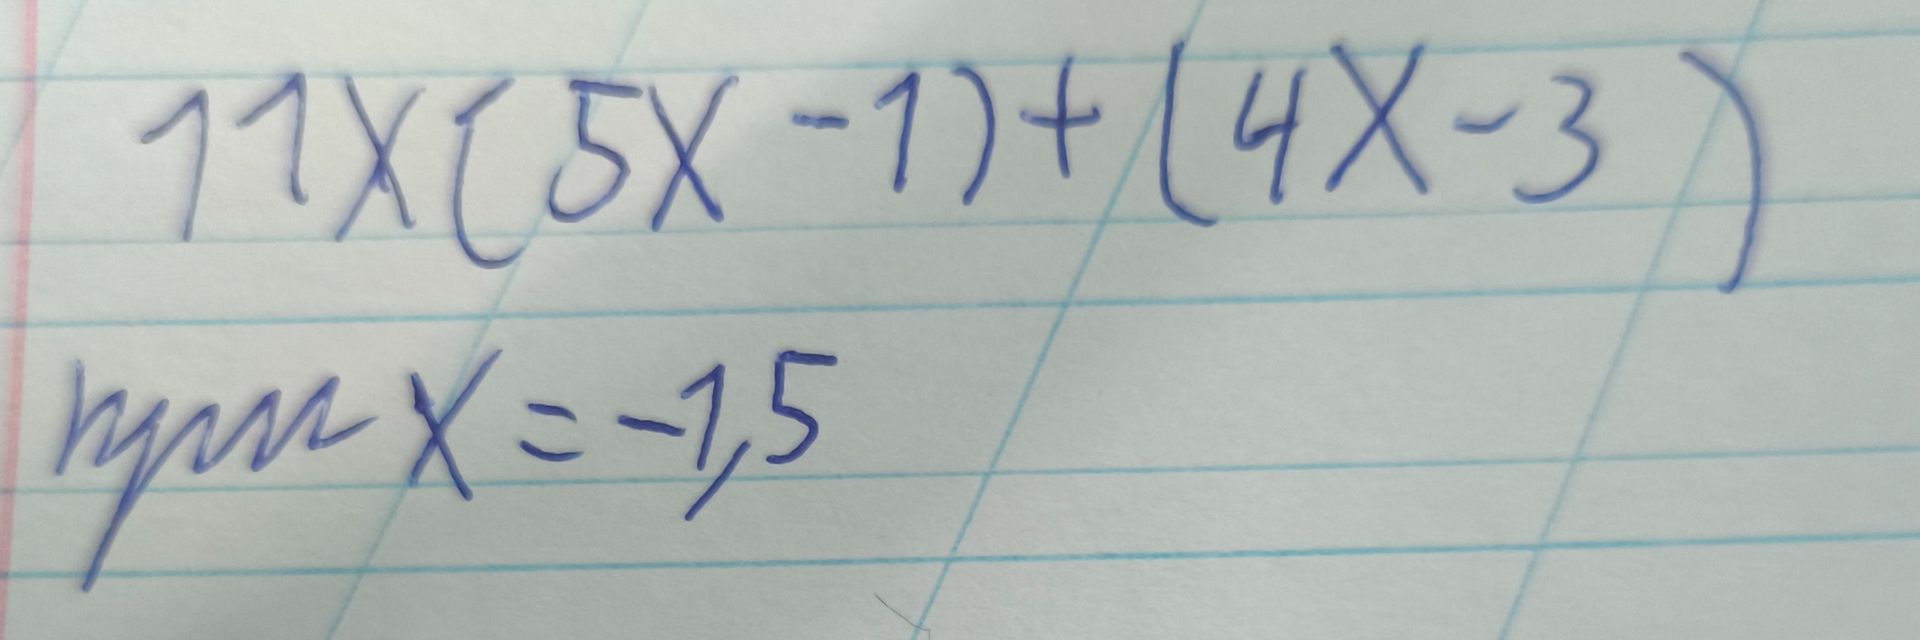 11x(5x-1)+(4x-3)
при x=-1,5